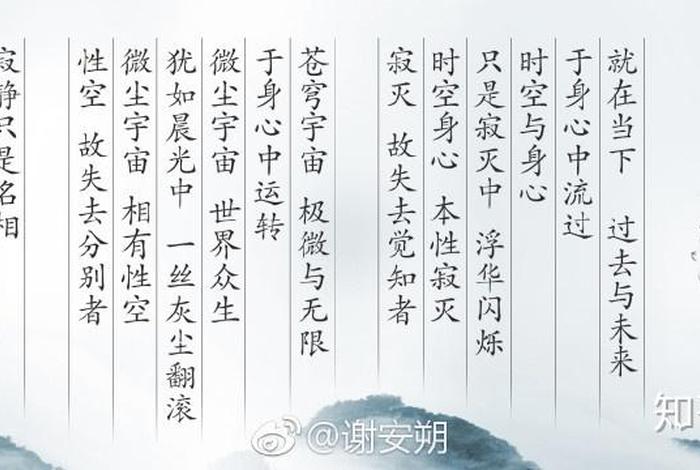 就在当下 过去与未来
于身心中流过
时空与身心
只是寂灭中 浮华闪烁
时空身心 本性寂灭
寂灭 故失去觉知者
苍穹宇宙 极微与无限
于身心中运转
微尘宇宙 世界众生
犹如晨光中 一丝灰尘翻滚
微尘宇宙 相有性空
性空 故失去分别者
寂静只是名相
@谢安朔
知